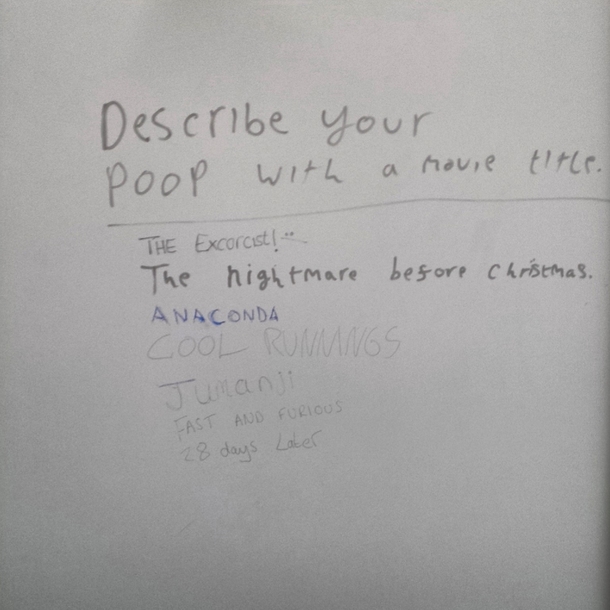 Describe your
Poop with a movie title.
THE Excorcist!
The nightmare before christmas.
ANACONDA
COOL RUNNINGS
Jumanji
FAST AND FURIOUS
28 days Later